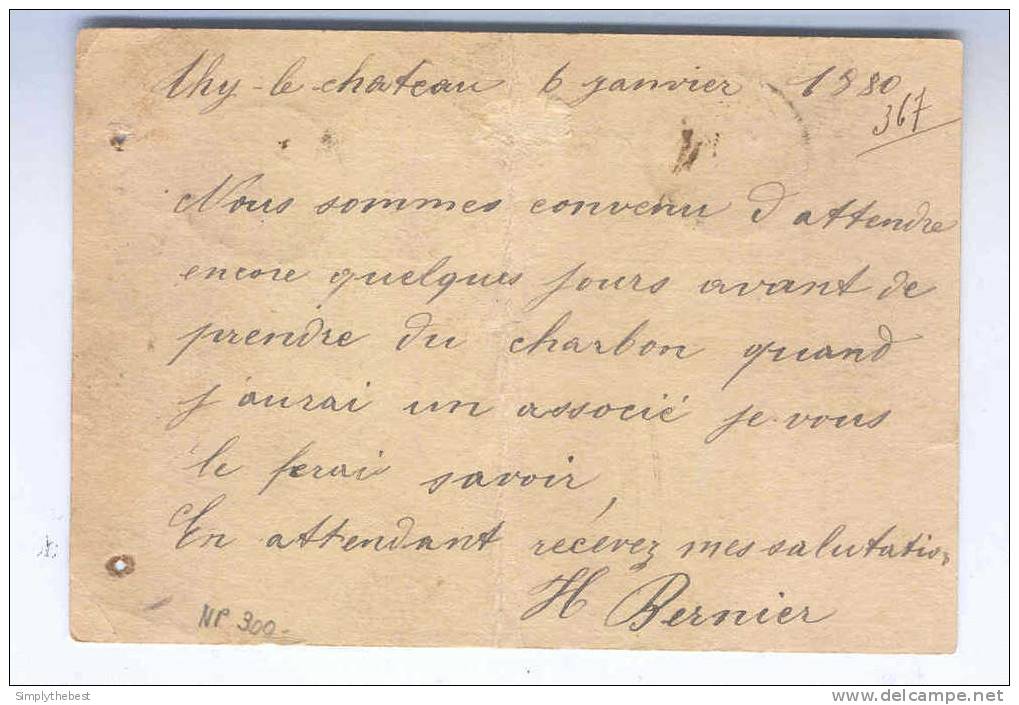 thy-le-chateau 6 janvier 1880
367
Nous sommes convenu d'attendre
encore quelques jours avant de
prendre du charbon quand
j'aurai un associé je vous
le ferai savoir,
En attendant recevez mes salutation
H Bernier
NP 300-
Simplythebest
www.delcampe.net